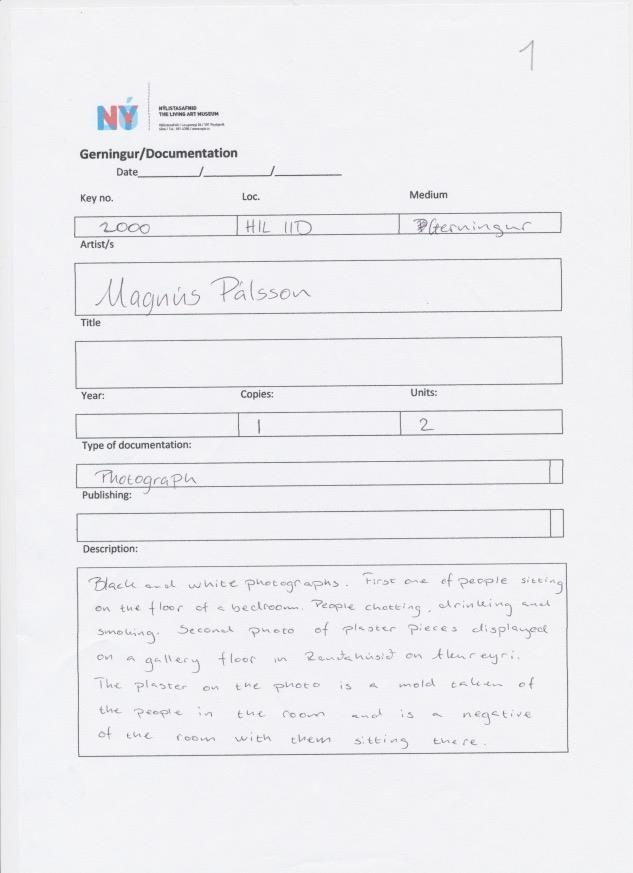 1
NÝ
NÝLISTASAFNIÐ
THE LIVING ART MUSEUM
Gerningur/Documentation
Date________/________/________
Key no. Loc. Medium
2000 HIL IID Gerningur
Artist/s
Magnús Pálsson
Title
Year: Copies: Units:
1 2
Type of documentation:
Photograph
Publishing:
Description:
Black and white photographs. First one of people sitting
on the floor of a bedroom. People chatting, drinking and
smoking. Second photo of plaster pieces displayed
on a gallery floor in Rauðahúsið on Akureyri.
The plaster on the photo is a mold taken of
the people in the room and is a negative
of the room with them sitting there.